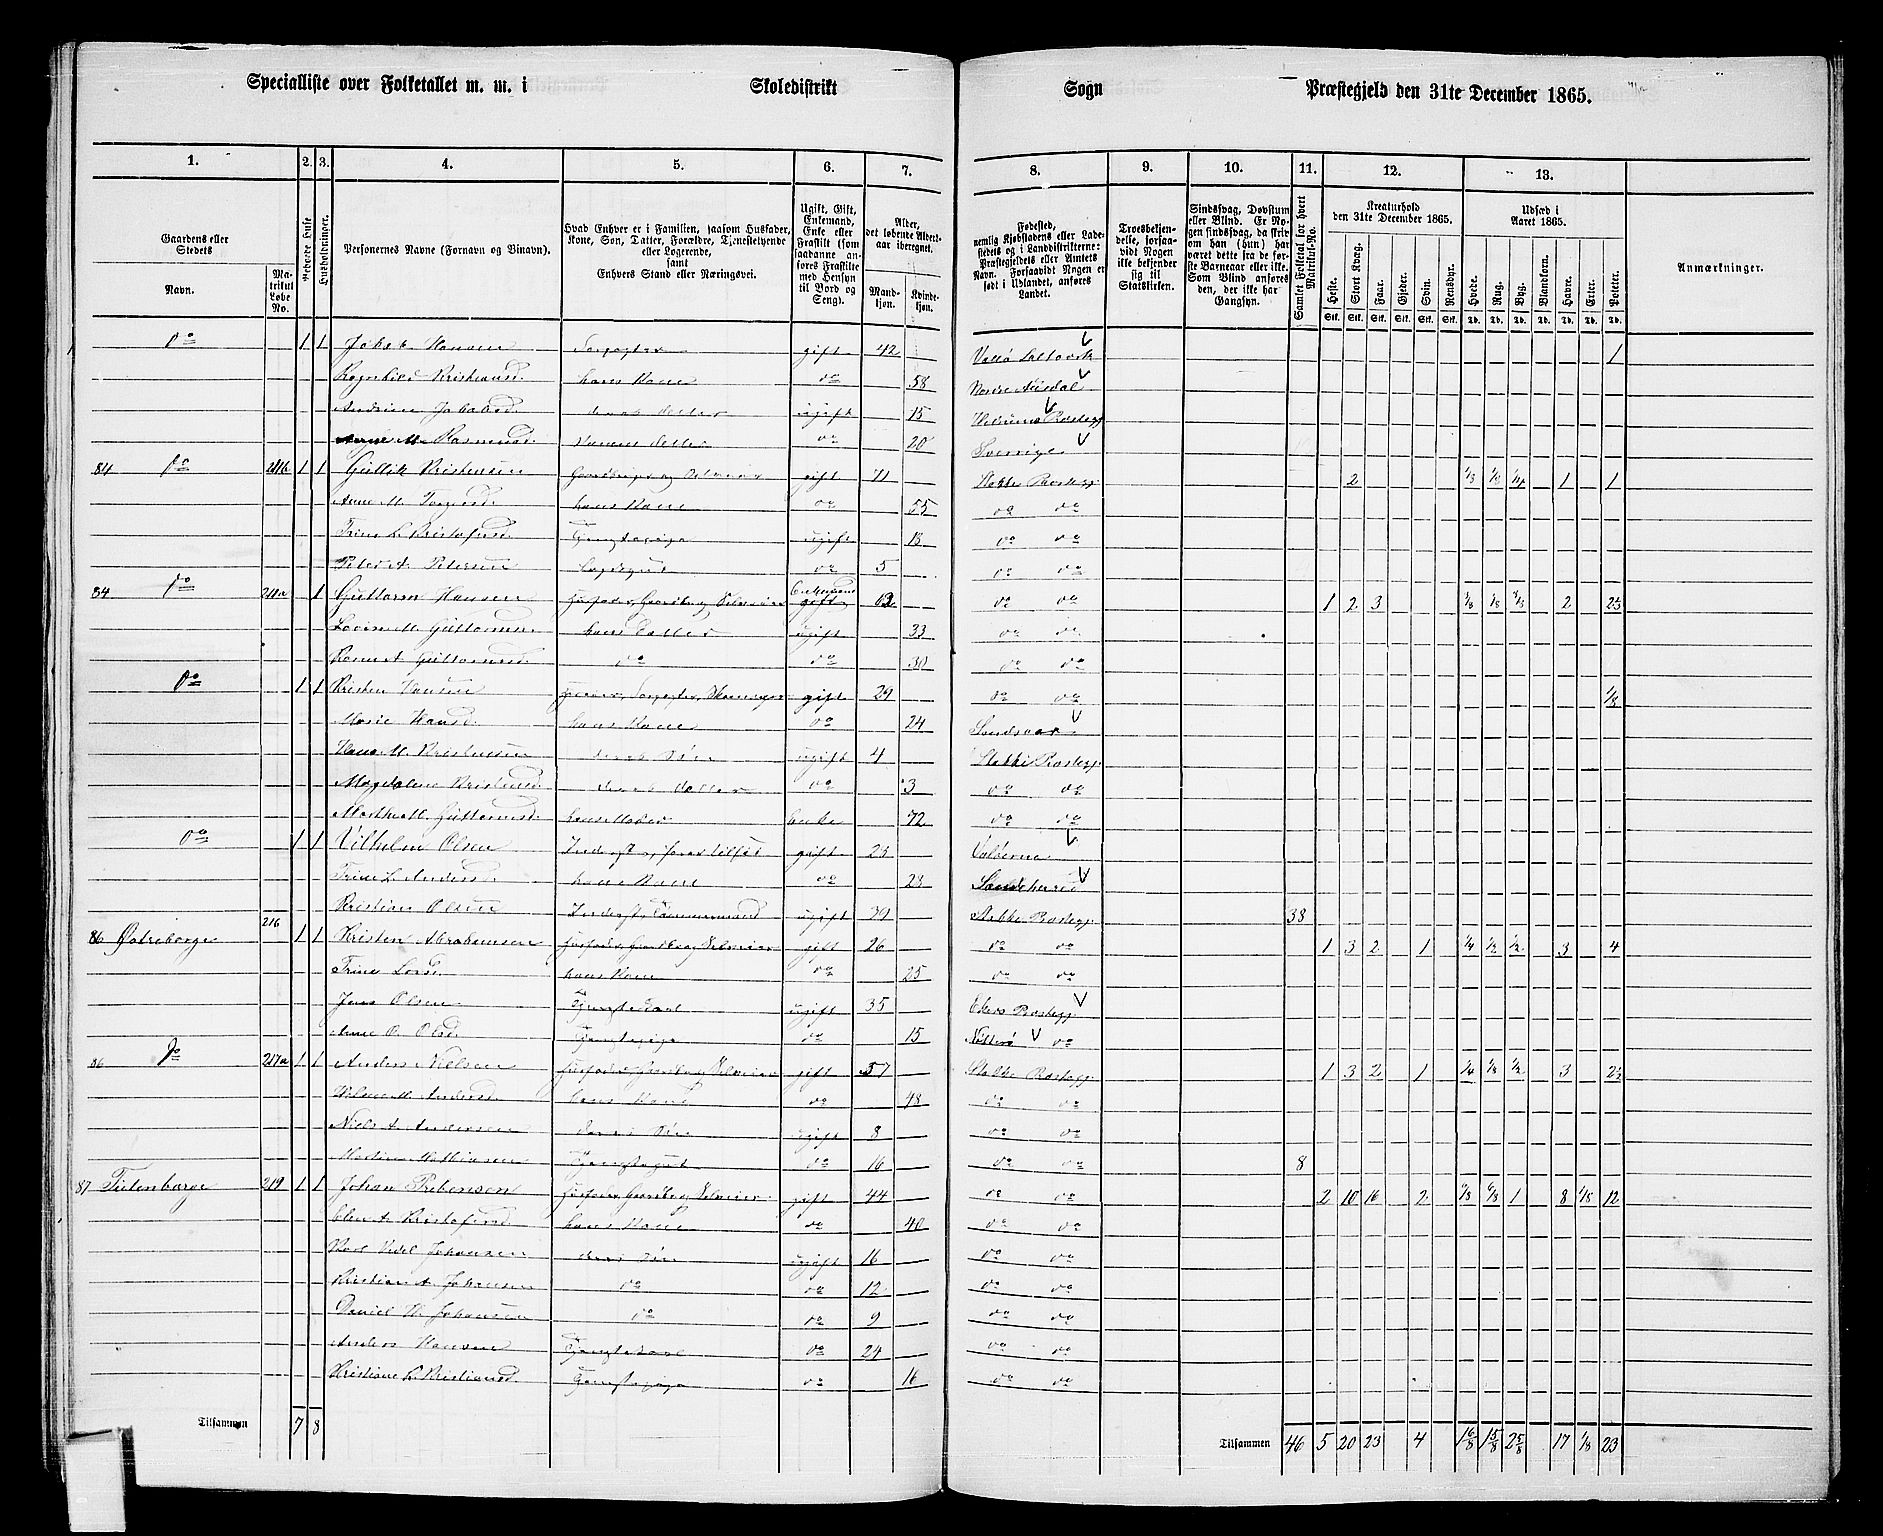 Specialliste over Folketallet m. m. i Skoledistrikt Sogn Præstegjeld den 31te December 1865.
1. 2. 3. 4. 5. 6. 7. 8. 9. 10. 11. 12. 13.
Gaardens eller Stedets Navn. Matrikul Løbe No. Beboede Huse Husholdninger. Personernes Navne (Fornavn og Binavn).
Hvad Enhver er i Familien, saasom Husfader, Kone, Søn, Datter, Forældre, Tjenestetyende eller Logerende, samt Enhvers Stand eller Næringsvei.
Ugift, Gift, Enkemand, Enke eller Fraskilt (som saadanne anføres Fraskilte med Hensyn til Bord og Seng).
Alder, det løbende Alders-aar iberegnet. Mandkjøn. Kvindekjøn.
Fødested, nemlig Kjøbstadens eller Ladestedets og i Landdistrikterne: Præstegjeldets eller Amtets Navn. Forsaavidt Nogen er født i Udlandet, anføres Landet.
Troesbekjendelse, forsaavidt Nogen ikke bekjender sig til Statskirken.
Sindssvag, Døvstum eller Blind. Er Nogen sindssvag, da hvad om han (hun) har været dette fra de første Barneaar eller ikke. Som Blind anføres den, der ikke har Gangsyn.
Samlet Folketal for hvert Matrikul-No.
Kreaturhold den 31te December 1865. Heste. Stort Kvæg. Faar. Gjeder. Svin. Rensdyr.
Udsæd i Aaret 1865. Hvede. Rug. Byg. Blandkorn. Havre. Erter. Poteter.
Anmærkninger.
Do 1 1 Jakob Hansen gift 42 Vallø Saltverk 1
Ragnhild Kristiansd. hans Kone do 58 Nordre Aurdal
Andrine Jakobsd. deres Datter ugift 15 Hedrums Præstegj
Anne M. Rasmusd. Konens Datter do 20 Sverrige
84 Do 211b 1 1 Gullik Kristensen gift 71 Stokke Præstegj. 2 1/8 1/8 1/4 1 1
Anne M. hans Kone do 55 do do
Trine L. Kristofersd. Tjenestepige ugift 18 do do
Peter A. Petersen Lægdsgut do 5 do do
84 Do 211a 1 Guttorm Hansen Husfader, Gaardbr og Selveier Enkemand gift 62 do do 1 2 3 1/8 1/8 2 2½
Lovise M. Guttormsd. hans Datter ugift 33 do do
Karen A. Guttormsd. do do 30 do do
Do 1 1 Kristen Hansen gift 29 do do 1/8
Marie Hansd. hans Kone do 24 Sandsvær
Hans M. Kristensen deres Søn ugift 4 Stokke Præstegj.
Magdalene Kristensd. deres Datter do 3 do do
Marthe M. Guttormsd. hans Moder Enke 72 do do
Do 1 1 Vilhelm Olsen gift 23 Valøerne
Trine L. Andersd. hans Kone do 23 Sandeherred
Kristian Olsen Inderst, Tømmermand ugift 39 Stokke Præstegj. 38
86 216 1 1 Kristen Abrahamsen Husfader, Gaardbr og Selveier gift 26 do do 1 3 2 1 1/4 1/2 1/2 3 4
Trine Larsd. hans Kone do 25 do do
Jens Olsen Tjenestekarl ugift 35 Ekers Præstegj.
Anne O. Olsd. Tjenestepige do 15 Nøtterø do
86 Do 217a 1 1 Anders Nielsen Husfader, Gaardbr og Selveier gift 57 Stokke Præstegj. 1 3 2 1 1/4 1/8 1/2 3 2½
M. Andersd. hans Kone do 48 do do
Niels A. Andersen deres Søn ugift 8 do do
Martin Mathiasen Tjenestegut do 16 do do 8
87 219 1 1 Johan Prebensen Husfader, Gaardbr og Selveier gift 44 do do 2 10 16 2 6/8 6/8 1 8 1/8 12
Elen A. Kristofersd. hans Kone do 40 do do
Karl Johansen deres Søn ugift 16 do do
Kristian A. Johansen do do 12 do do
Daniel H. Johansen do do 9 do do
Anders Hansen Tjenestekarl do 24 do do
Kristiane L. Kristiansd. Tjenestepige do 16 do do
Tilsammen 7 8 Tilsammen 46 5 20 23 4 1 6/8 1 5/8 2 5/8 17 1/8 23